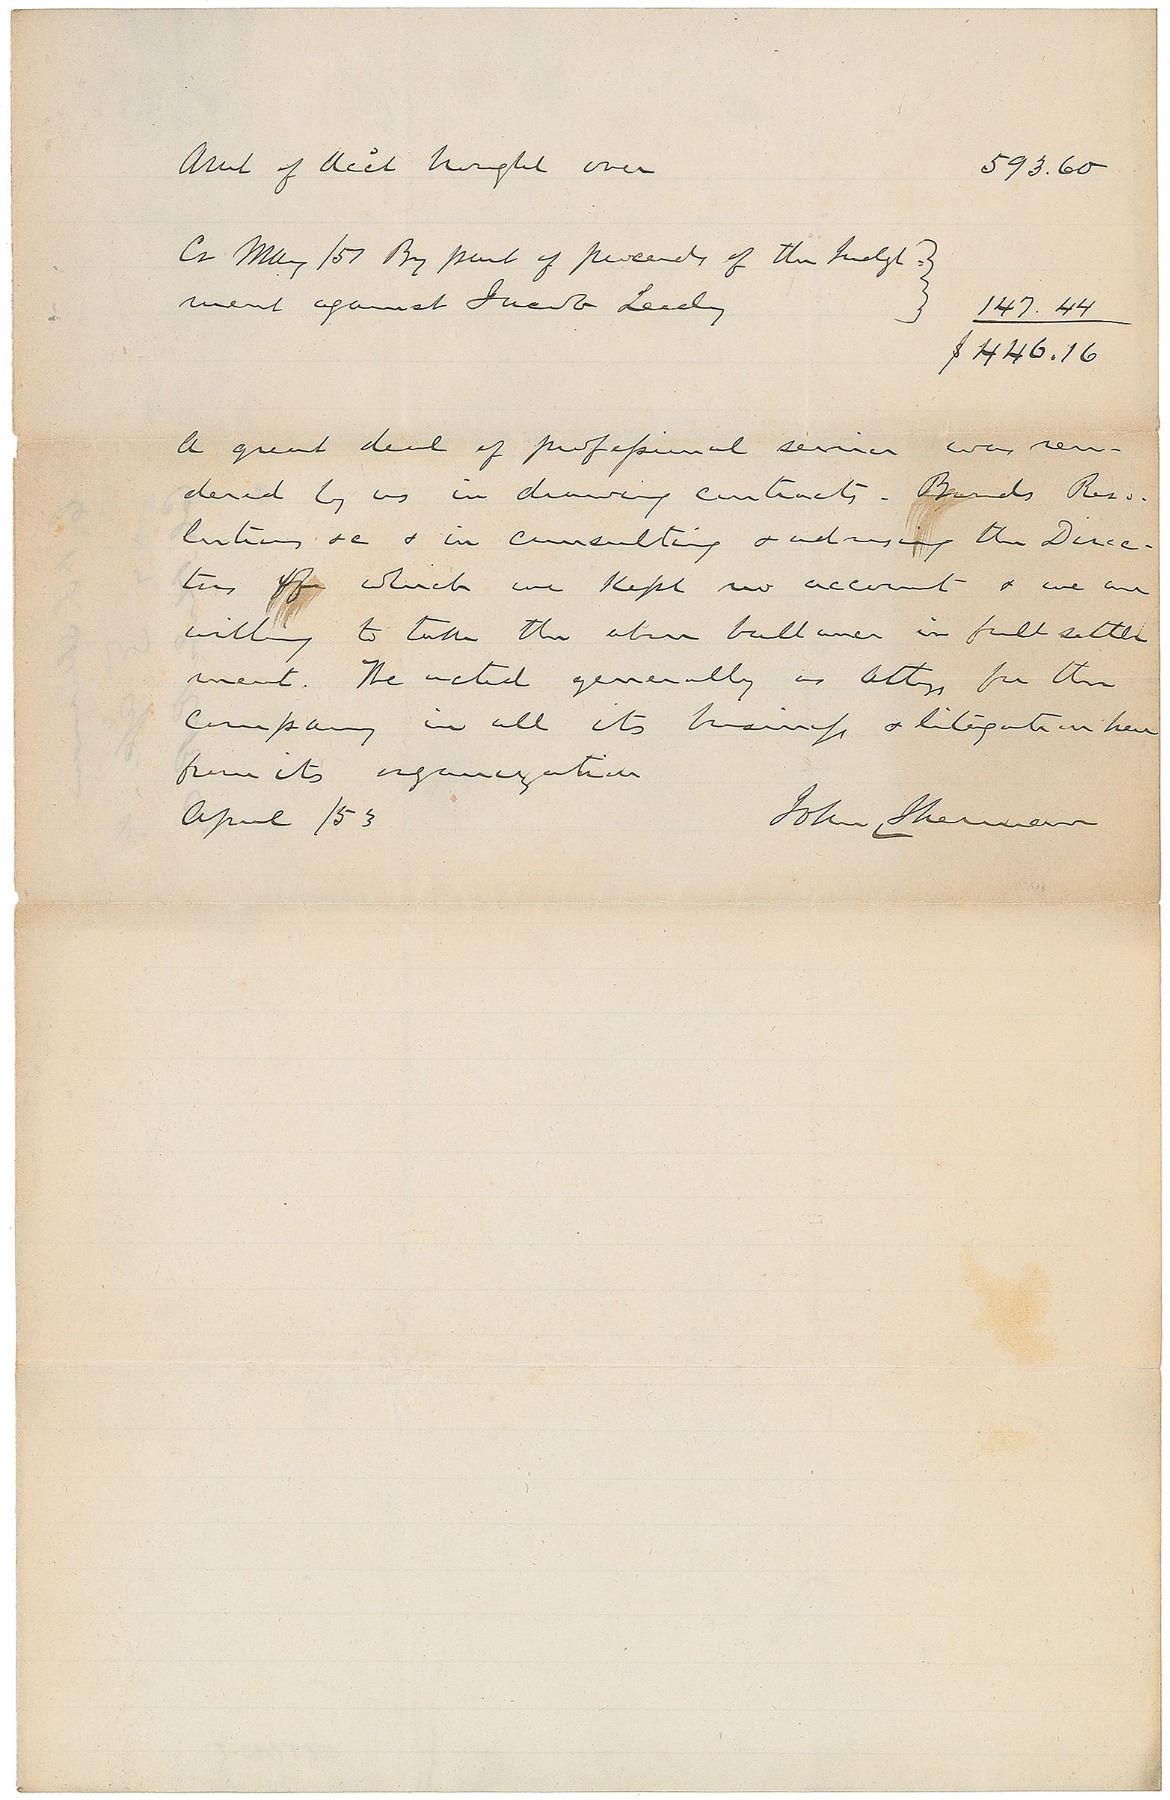 Amt of Acct brought over 593.60
Cr May /51 By part of proceeds of the Judgt-
ment against Jacob Leedy 147.44
$446.16
A great deal of professional service was ren-
dered by us in drawing contracts - Bonds Reso-
lutions &c & in consulting & advising the Direc-
tors of which we kept no account & we are
willing to take the above ballance in full settle
ment. We acted generally as Attys for the
company in all its business & litigation here
from its organization
April /53 John Sherman